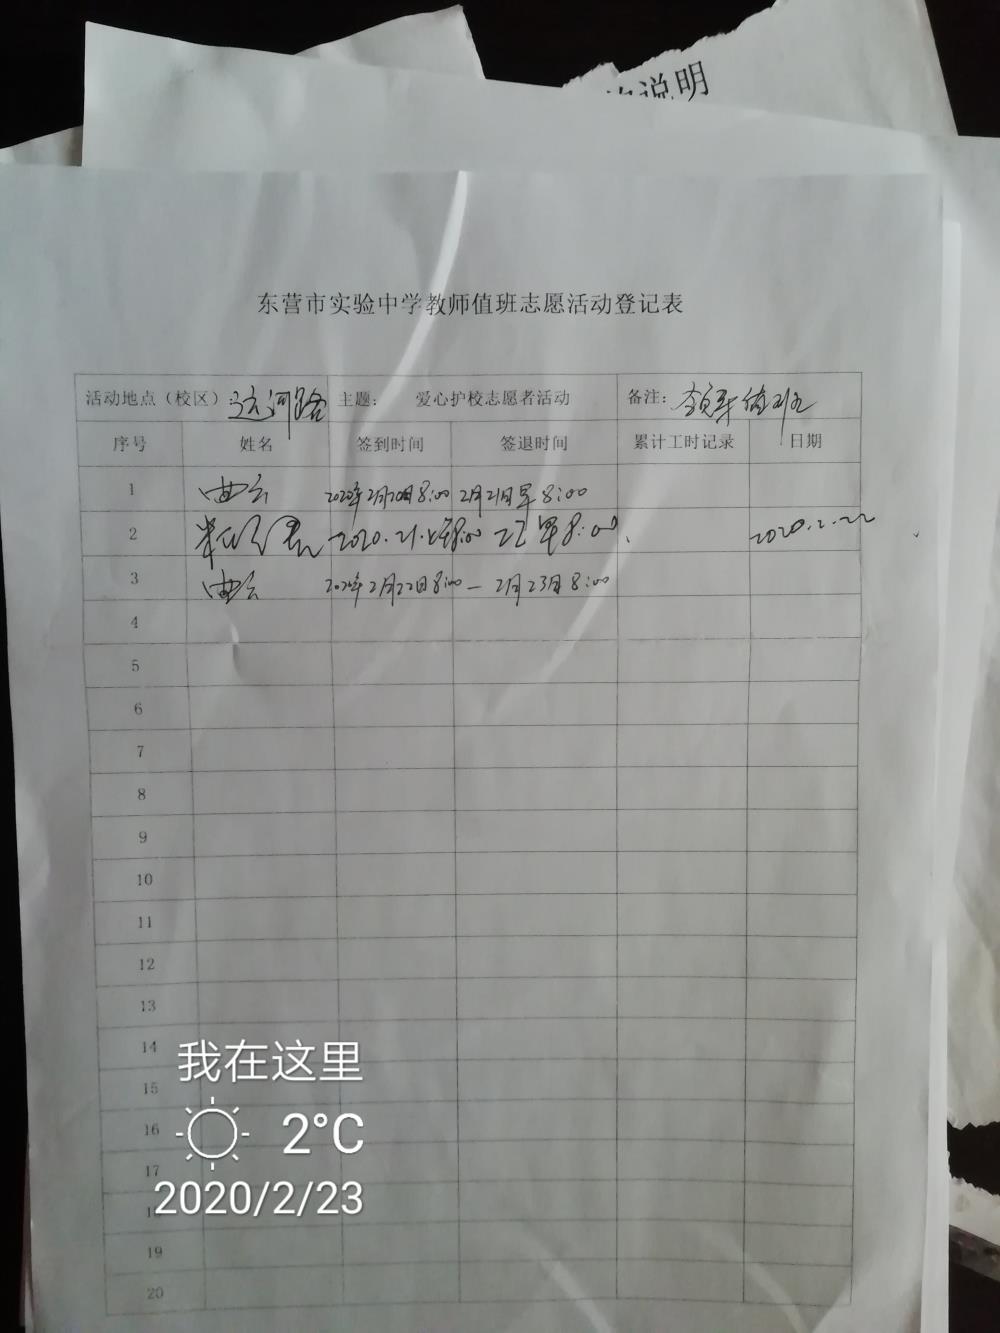 说明
东营市实验中学教师值班志愿活动登记表
活动地点（校区）： 运河路 主题： 爱心护校志愿者活动 备注： 领导值班
序号 姓名 签到时间 签退时间 累计工时记录 日期
1 曲云 2020年2月20日8:00 2月21日早8:00
2 2020.2.21.上午8:00 22早8:00. 2020.2.22
3 曲云 2020年2月22日8:00 — 2月23日8:00
4
5
6
7
8
9
10
11
12
13
14
我在这里
15
16
2°C
17
2020/2/23
19
20